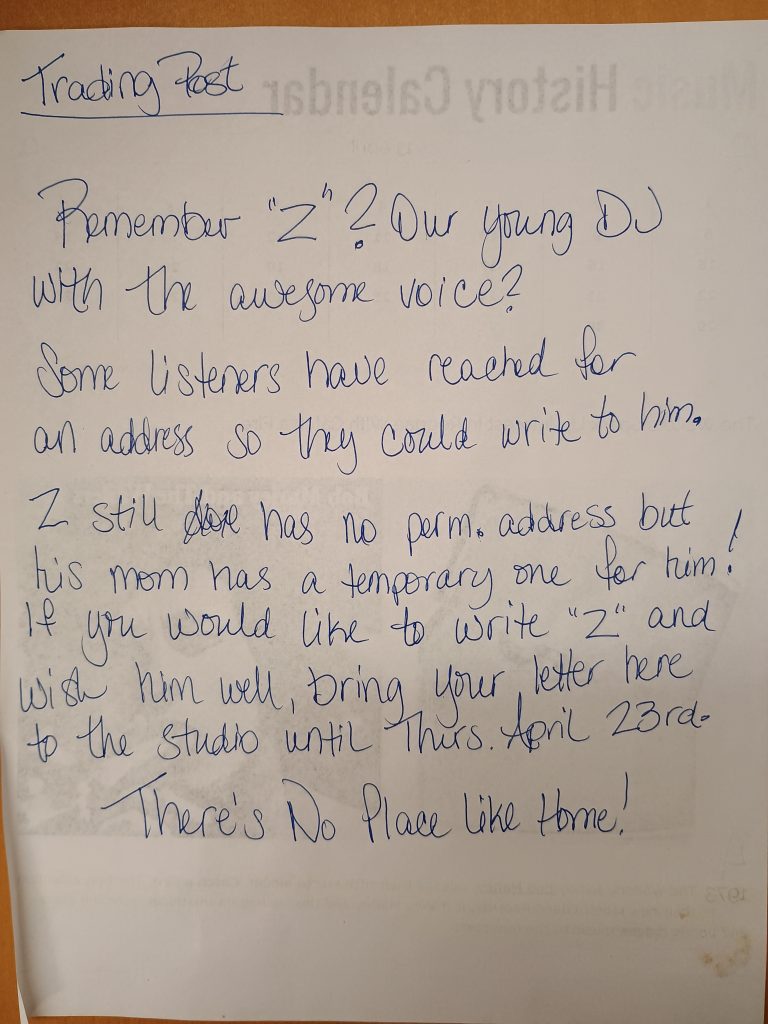 Trading Post
Music History Calendar
Remember "Z"? Our young DJ
with the awesome voice?
Some listeners have reached for
an address so they could write to him.
Z still has no perm. address but
his mom has a temporary one for him!
If you would like to write "Z" and
wish him well, bring your letter here
to the studio until Thurs. April 23rd.
There's No Place Like Home!
1973